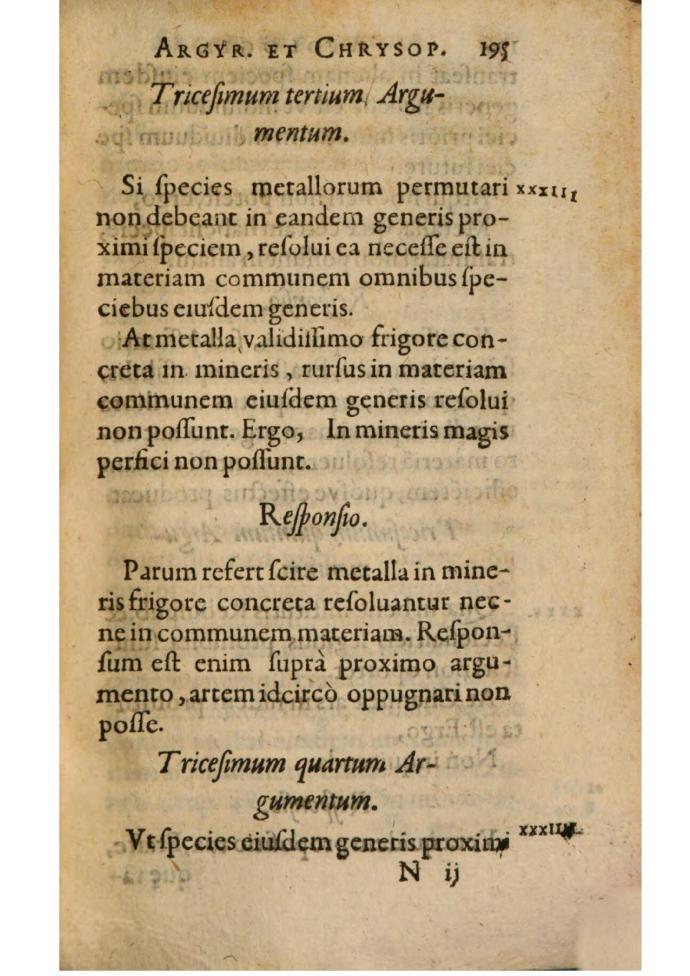 ARGYR. ET CHRYSOP. 195
Triceſimum tertium Argu-
mentum.
Si ſpecies metallorum permutari xxxiii
non debeant in eandem generis pro-
ximi ſpeciem, reſolui ea neceſſe eſt in
materiam communem omnibus ſpe-
ciebus eiuſdem generis.
At metalla validiſſimo frigore con-
creta in mineris, rurſus in materiam
communem eiuſdem generis reſolui
non poſſunt. Ergo, In mineris magis
perfici non poſſunt.
Reſponſio.
Parum refert ſcire metalla in mine-
ris frigore concreta reſoluantur nec-
ne in communem materiam. Reſpon-
ſum eſt enim ſuprà proximo argu-
mento, artem idcircò oppugnari non
poſſe.
Triceſimum quartum Ar-
gumentum.
Vt ſpecies eiuſdem generis proximi
N ij